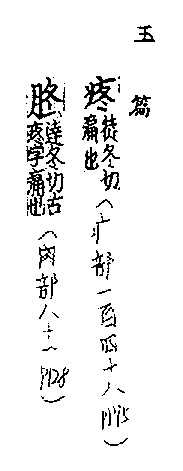 玉篇
疼徒冬切痛也(疒部一百四十八
胳徒冬切古疼字痛也(肉部八十一